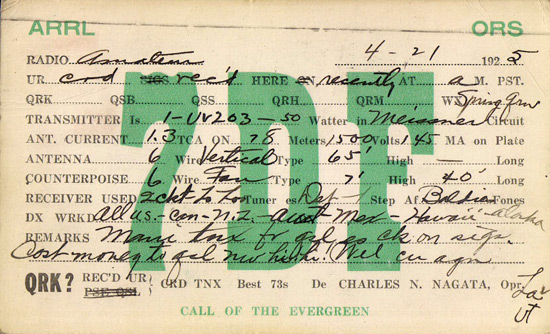 ARRL ORS
7DF
RADIO Amateur 4-21 1925
UR crd SIGS rec'd HERE ON recently AT a M. PST.
QRK QSB QSS QRH QRM WX Spring
TRANSMITTER Is 1-UV203-50 Watter in Meissner Circuit
ANT. CURRENT 1.3 TCA ON 78 Meters 1500 Volts 145 MA on Plate
ANTENNA 6 Wire Vertical Type 65' High — Long
COUNTERPOISE 6 Wire Fan Type 7' High 40' Long
RECEIVER USED 2ckt Lo Los Tuner es Det-1 Step Af Baldies Fones
DX WRKD All U.S.-can-N.Z.- Mex-Hawaii-alaska
REMARKS Mani tnx fr qsl es ck on sigs.
Cost money to qsl nw hihi! Wel cu agn
QRK? REC'D UR PSE QSL CRD TNX Best 73s De CHARLES N. NAGATA, Opr.
CALL OF THE EVERGREEN